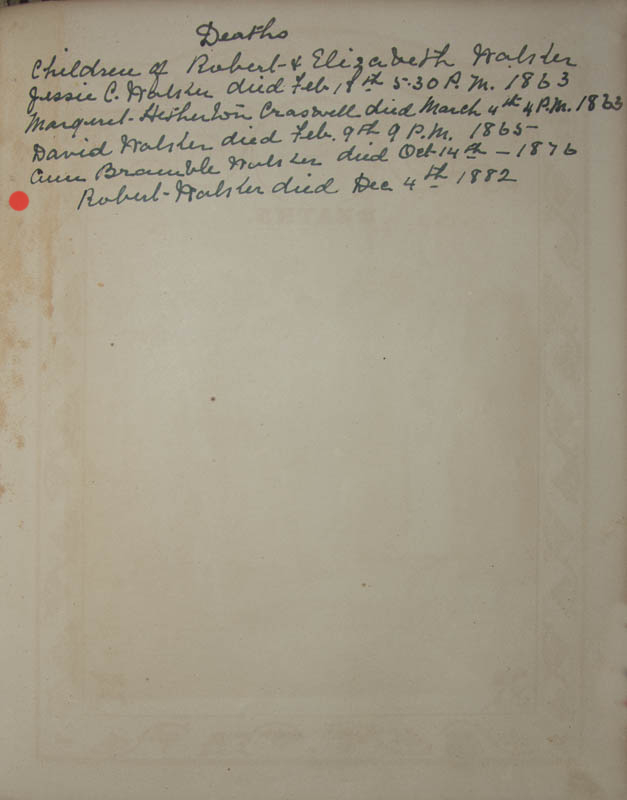 Deaths
Children of Robert & Elizabeth Walster
Jessie C. Walster died Feb. 18th 5-30 P.M. 1863
Margaret Hetherton Craswell died March 4th 4 P.M. 1863
David Walster died Feb. 9th 9 P.M. 1865-
Ann Bramble Walster died Oct 14th - 1876
Robert Walster died Dec 4th 1882
DEATHS